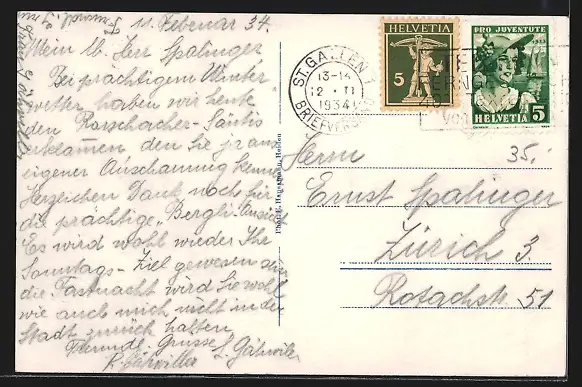 11. Februar 34.
Mein lb. Herr Spalinger
Bei prächtigem Winter
wetter haben wir heute
den Rorschacher-Säntis
erklommen den Sie ja aus
eigener Anschauung kennen
Herzlichen Dank noch für
die prächtige „Bergli-Ansicht
Es wird wohl wieder Ihr
Sonntags-Ziel gewesen sein
die Fastnacht wird Sie wohl
wie auch mich nicht in der
Stadt zurück halten
Freundl. Grüsse L. Gähwiler
Photo E. Hausamann, Heiden
HELVETIA
5
PRO JUVENTUTE
HELVETIA 5
ST. GALLEN 1
13-14
12 · II
1934
BRIEFVERSAND
35.-
Herrn
Ernst Spalinger
Zürich 3.
Rotachstr. 51